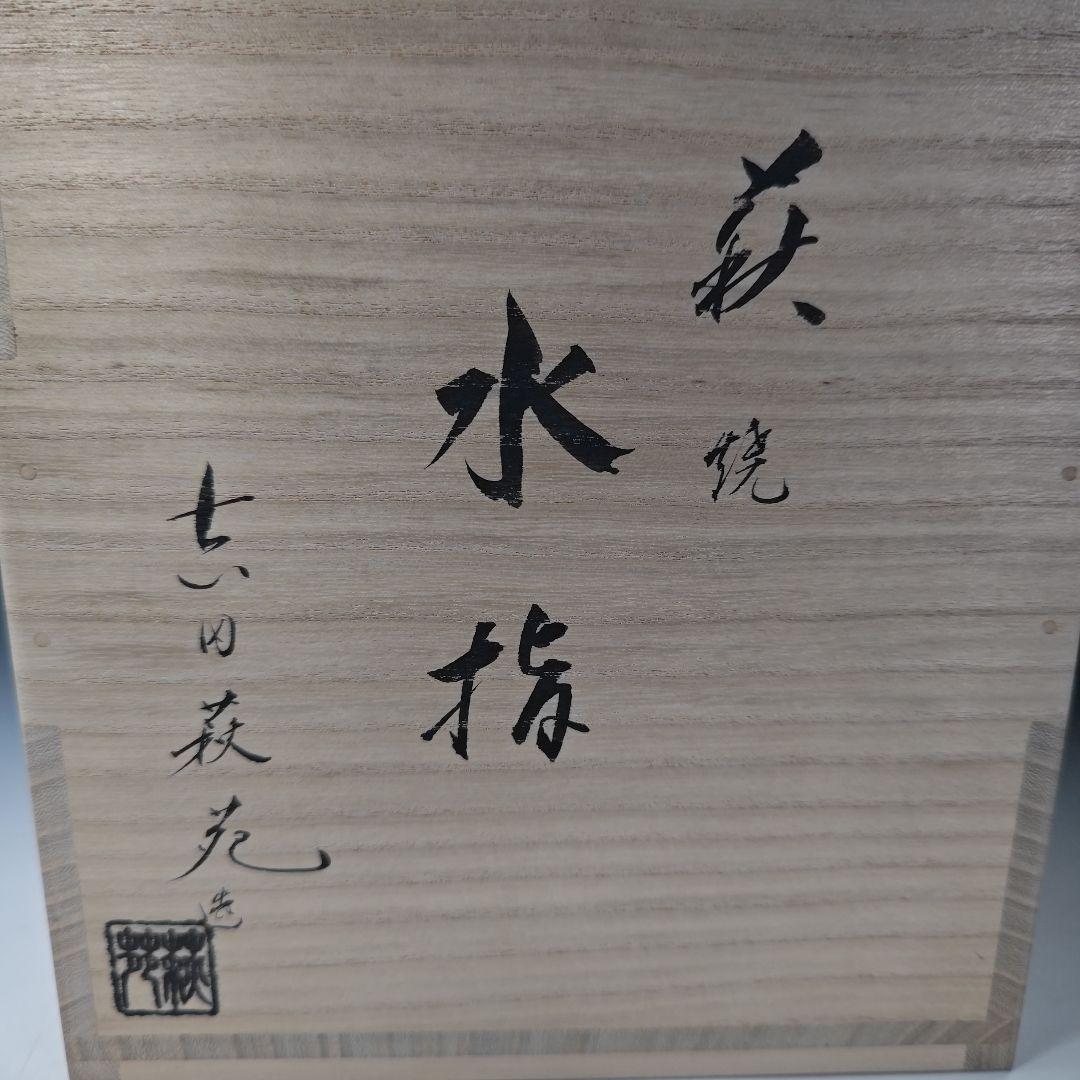 萩焼
水指
吉田萩苑造
萩苑